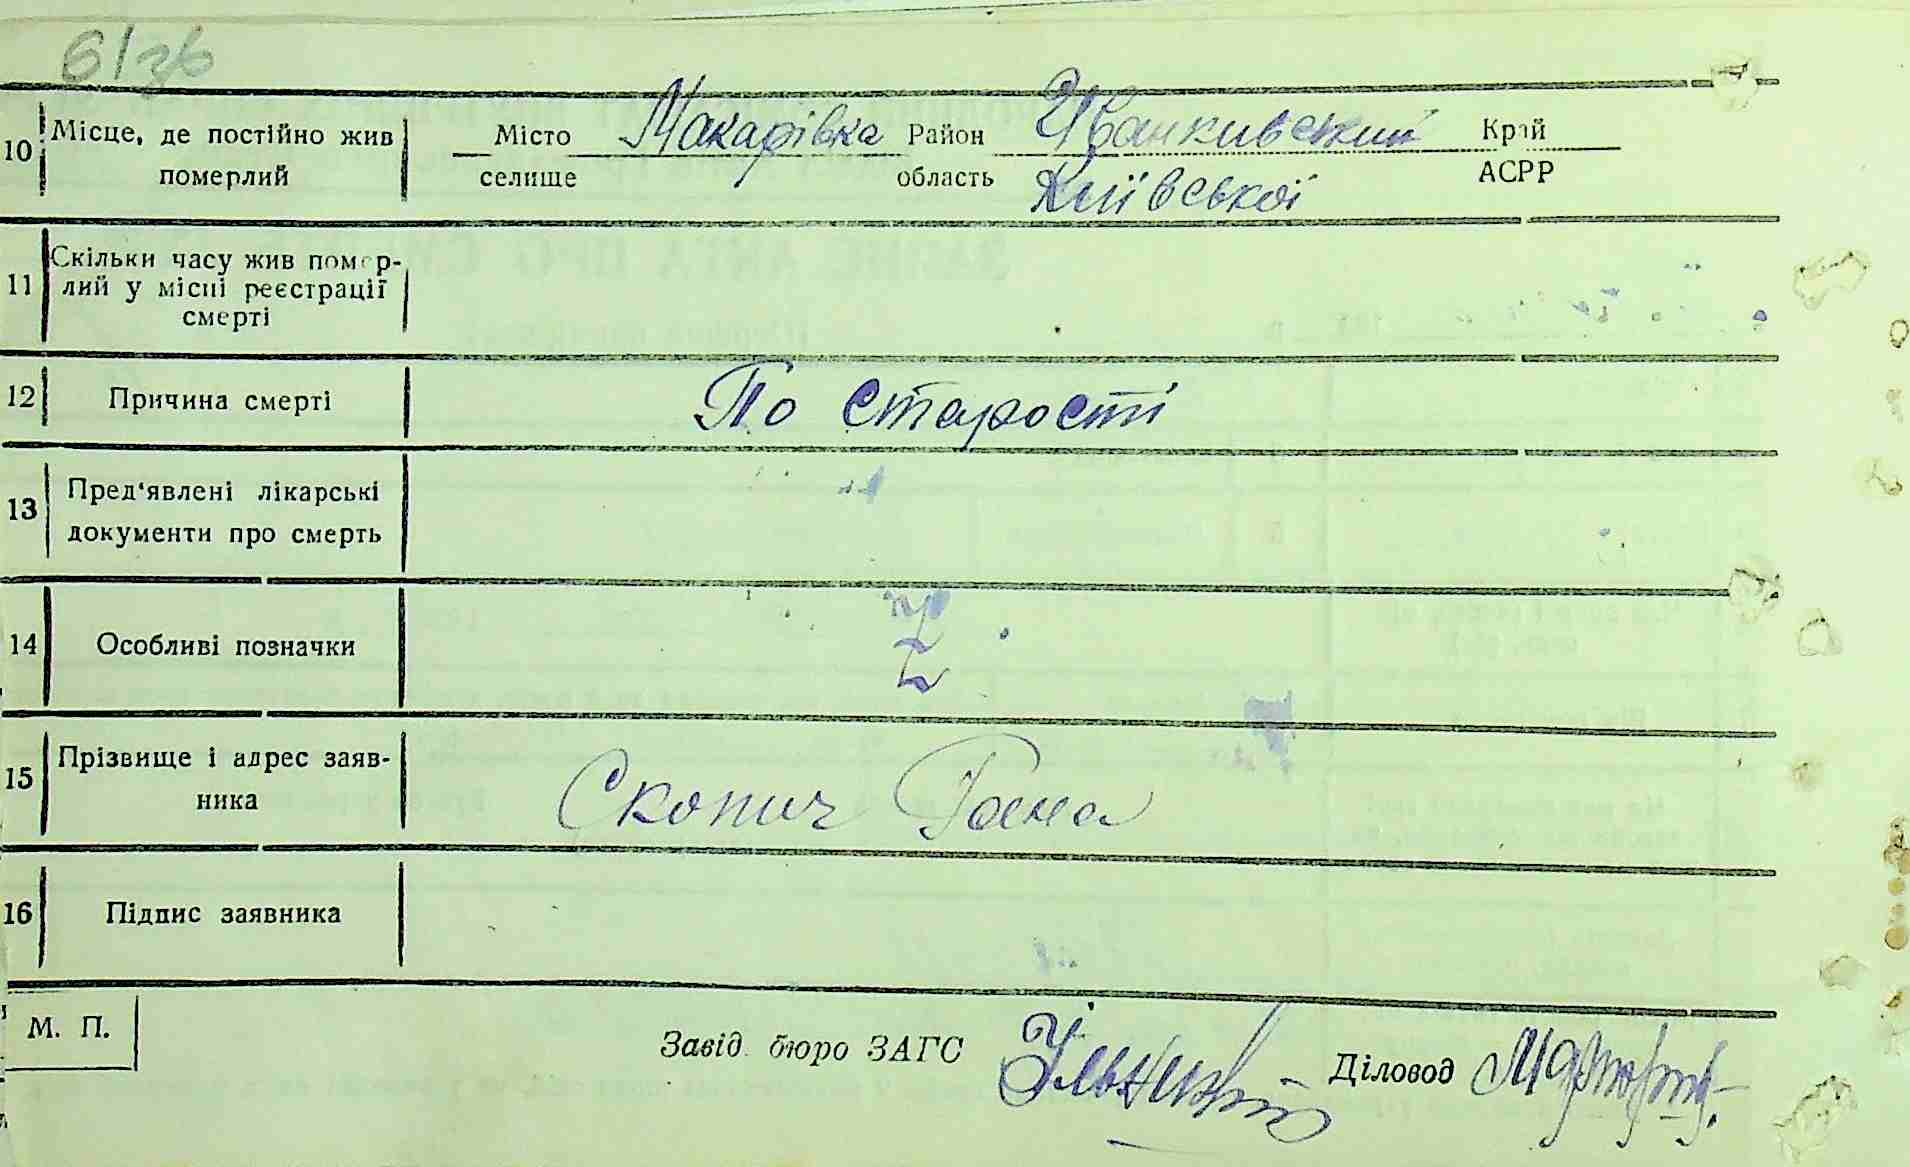 6/зб
10 Місце, де постійно жив Місто Макарівка Район Иванкивский Край
померлий селище область Київської АСРР
11 Скільки часу жив помер-
лий у місці реєстрації
смерті
12 Причина смерті По старості
13 Пред'явлені лікарські
документи про смерть
14 Особливі позначки Z
15 Прізвище і адрес заяв-
ника Скопич Ганна
16 Підпис заявника
М. П.
Завід. бюро ЗАГС Діловод